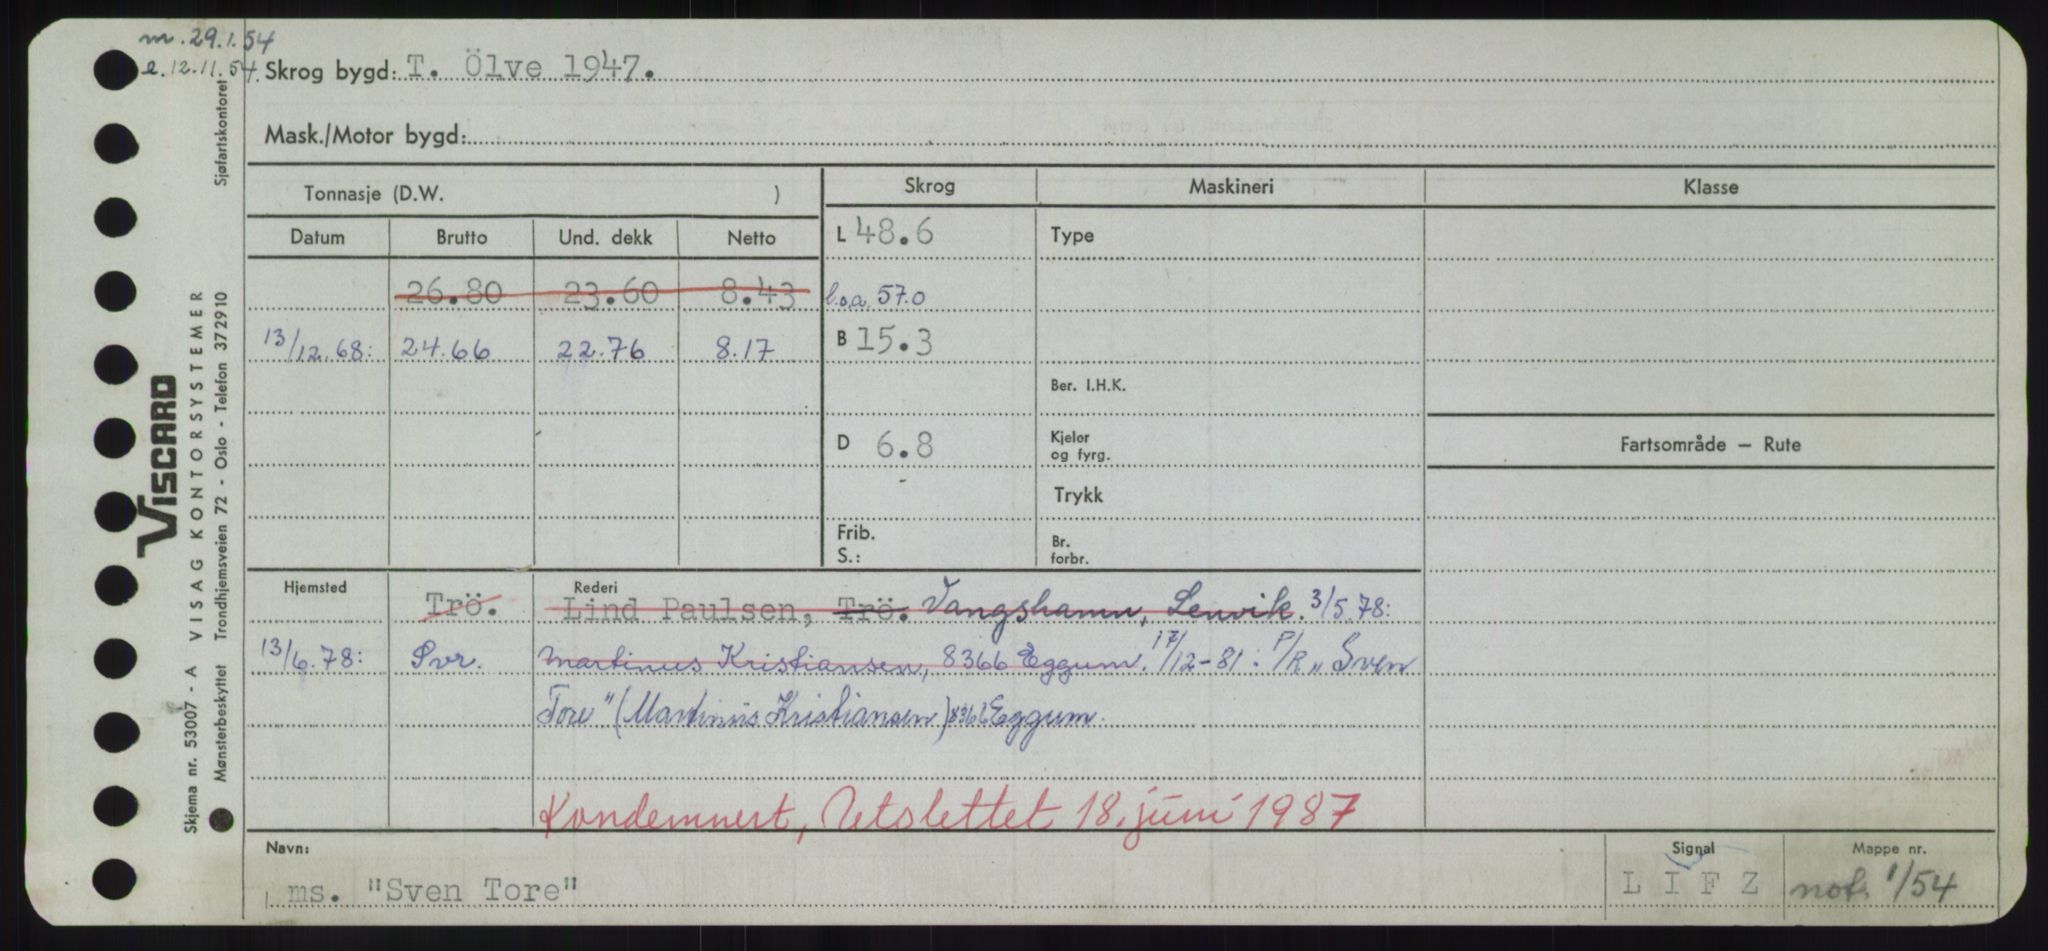 m. 29.1.54
e. 12.11.54.
Skrog bygd: T. Ölve 1947.
Mask./Motor bygd:
Tonnasje (D.W. )
Skrog Maskineri Klasse
Datum Brutto Und. dekk Netto
L 48.6 Type
26.80 23.60 8.43
l.o.a. 57.0
13/12.68: 24.66 22.76 8.17
B 15.3
Ber. I.H.K.
D 6.8
Kjeler og fyrg.
Fartsområde — Rute
Trykk
Frib.
S.:
Br. forbr.
Hjemsted Rederi
Trö. Lind Paulsen, Trö. Vangshamn, Lenvik. 3/5.78:
13/6.78: Svr. Martinus Kristiansen, 8366 Eggum. 17/12-81: P/R "Sven
Tore" (Martinus Kristiansen) 8366 Eggum.
Kondemnert, Utslettet 18. juni 1987
Navn: Signal Mappe nr.
ms. "Sven Tore" L I F Z not. 1/54
Sjøfartskontoret
VISCARD
VISAG KONTORSYSTEMER
Trondhjemsveien 72 - Oslo - Telefon 372910
Skjema nr. 53007 - A
Mønsterbeskyttet